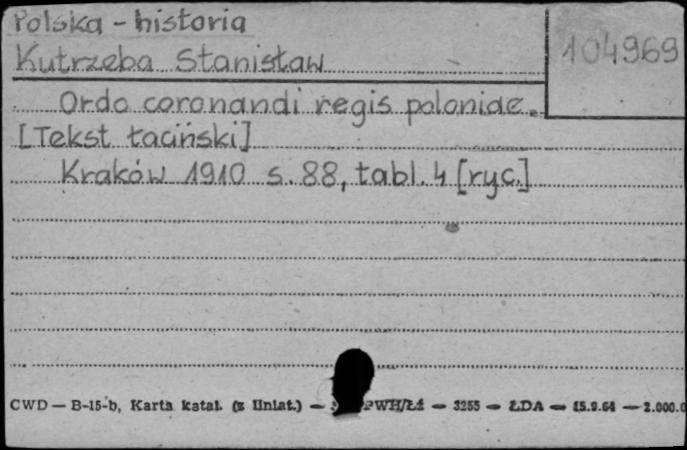 Polska - historia
Kutrzeba Stanisław
104969
Ordo coronandi regis poloniae.
[Tekst łaciński]
Kraków 1910 s. 88, tabl. 4 [ryc.]
CWD — B-15-b, Karta katal. (z liniat.) — PWH/Łż — 3255 — ŁDA — 15.9.64 — 2.000.0